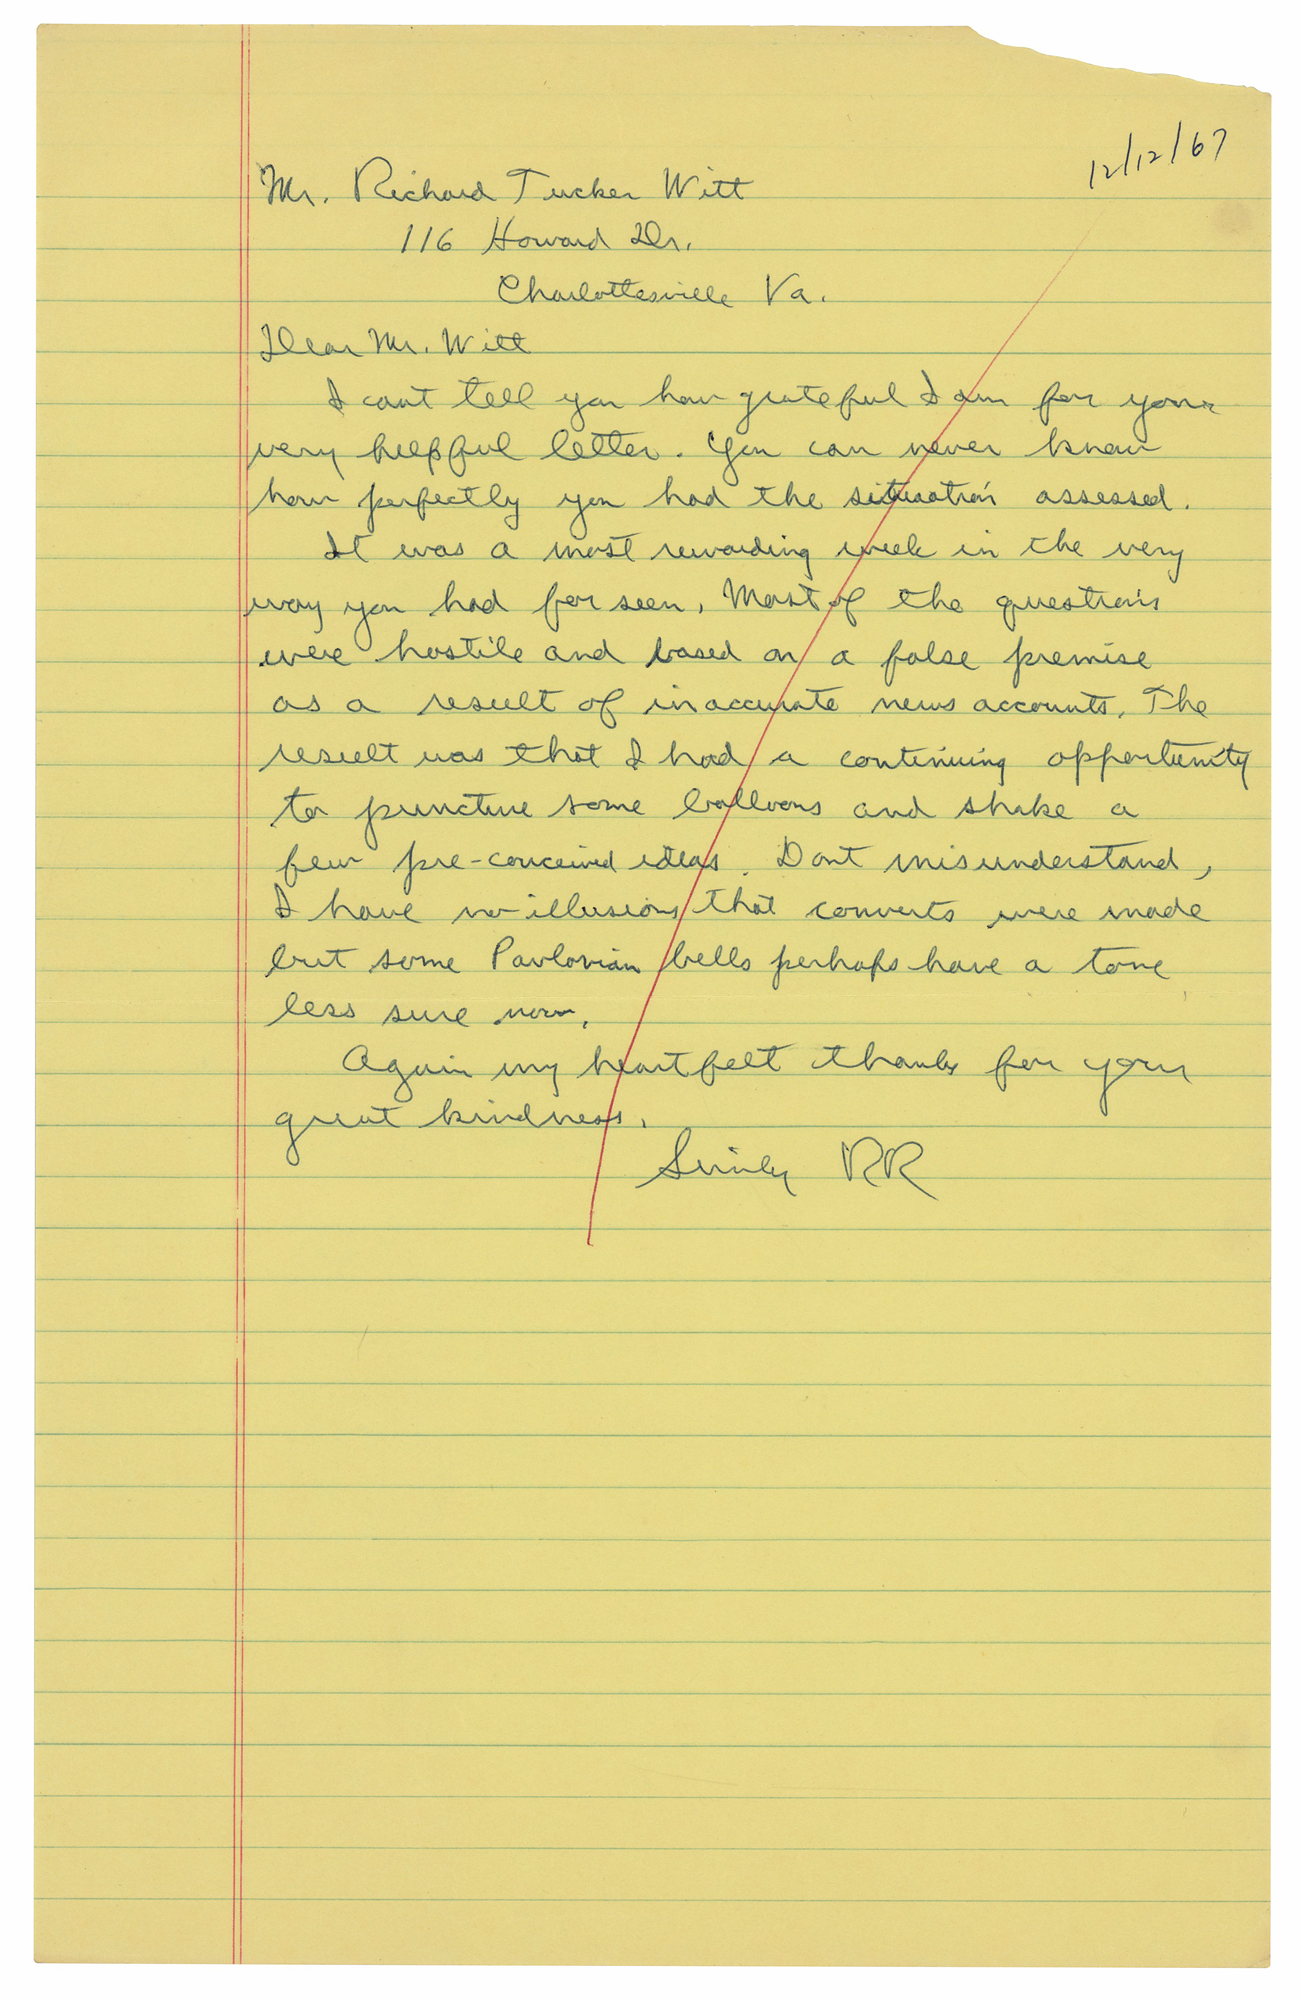 12/12/67
Mr. Richard Tucker Witt
116 Howard Dr.
Charlottesville Va.
Dear Mr. Witt
I cant tell you how grateful I am for your
very helpful letter. You can never know
how perfectly you had the situation assessed.
It was a most rewarding week in the very
way you had for seen. Most of the questions
were hostile and based on a false premise
as a result of inaccurate news accounts. The
result was that I had a continuing opportunity
to puncture some balloons and shake a
few pre-conceived ideas. Dont misunderstand,
I have no illusions that converts were made
but some Pavlovian bells perhaps have a tone
less sure now.
Again my heartfelt thanks for your
great kindness.
Sincerely RR